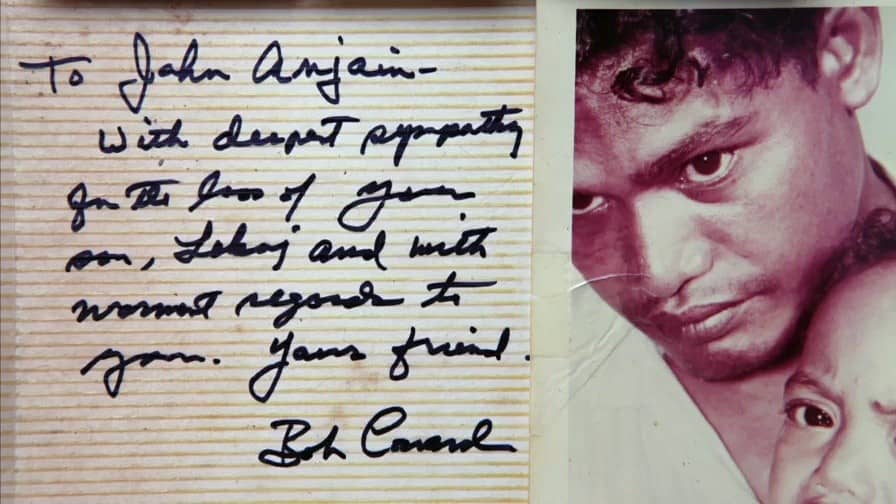 To John Anjain-
With deepest sympathy
for the loss of your
son, Lekoj and with
warmest regards to
you. Your friend.
Bob Conard